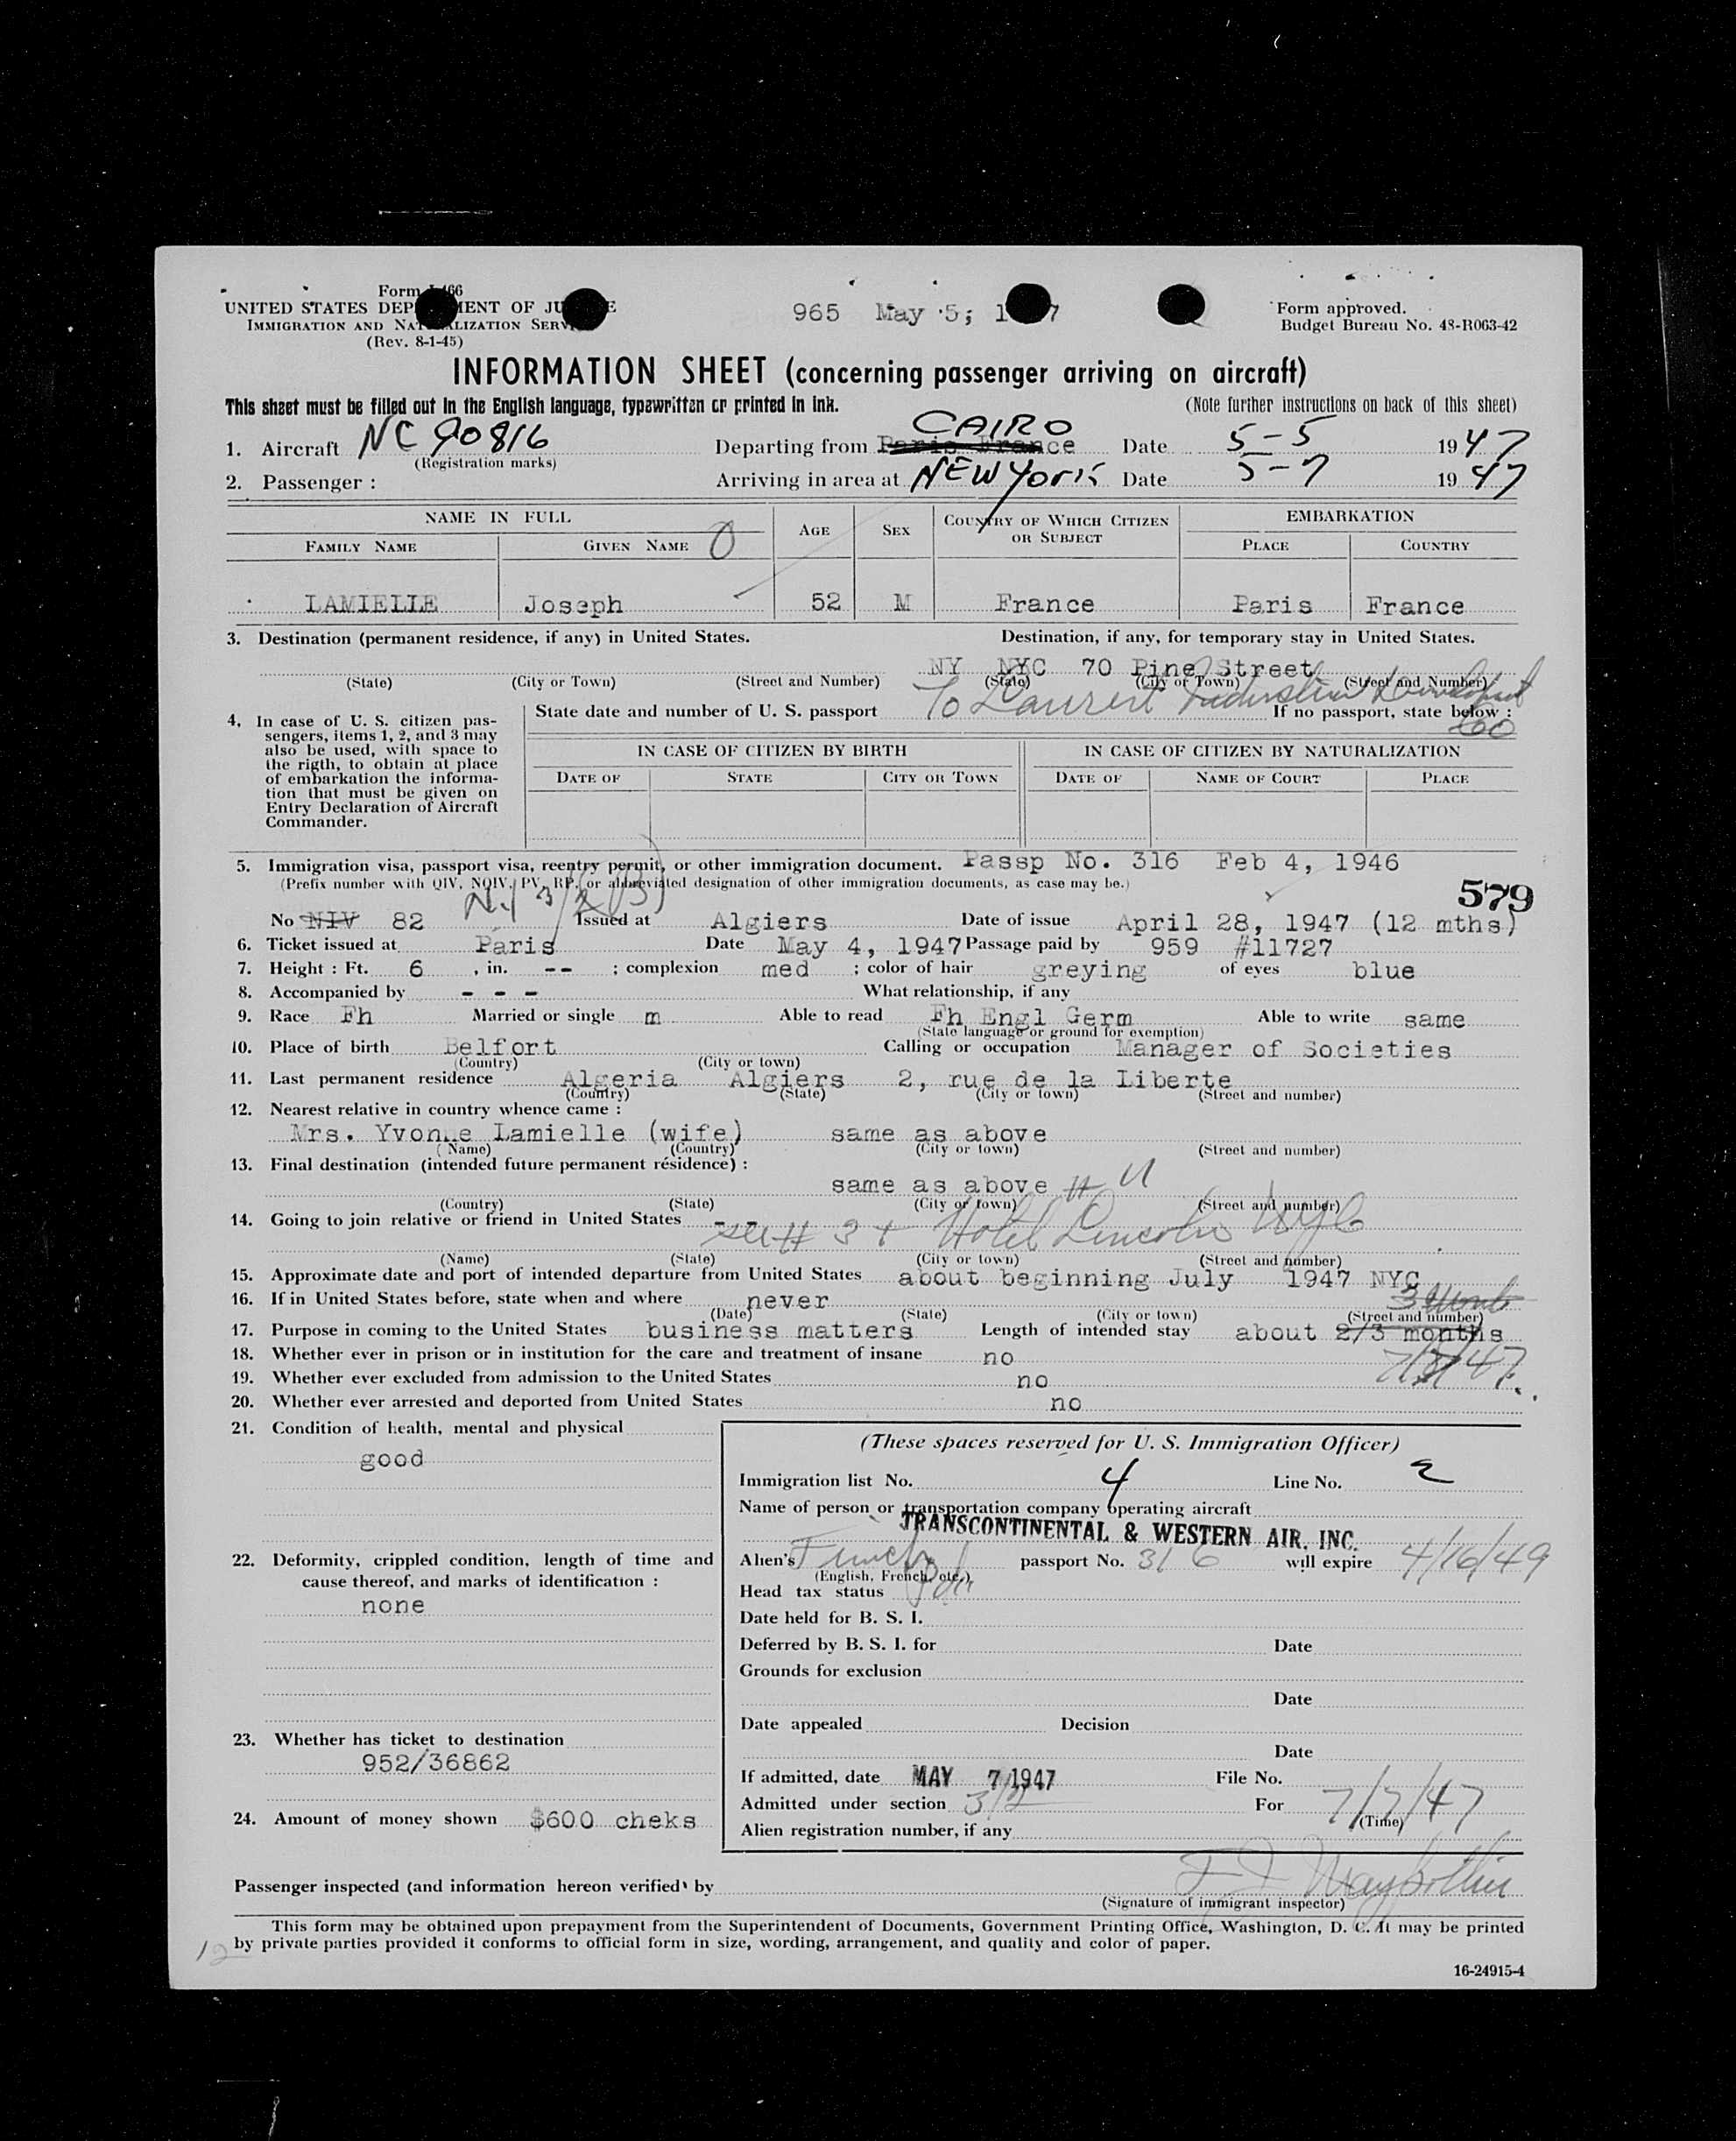 Form I-466
UNITED STATES DEPARTMENT OF JUSTICE
IMMIGRATION AND NATURALIZATION SERVICE
(Rev. 8-1-45)
965 May 5, 1947
Form approved.
Budget Bureau No. 43-R063-42
INFORMATION SHEET (concerning passenger arriving on aircraft)
This sheet must be filled out in the English language, typewritten or printed in ink.
(Note further instructions on back of this sheet)
CAIRO
1. Aircraft NC 90816 Departing from Paris France Date 5-5 1947
(Registration marks)
2. Passenger : Arriving in area at NEW YORK Date 5-7 1947
NAME IN FULL AGE SEX COUNTRY OF WHICH CITIZEN OR SUBJECT EMBARKATION
FAMILY NAME GIVEN NAME PLACE COUNTRY
LAMIELLE Joseph 52 M France Paris France
3. Destination (permanent residence, if any) in United States. Destination, if any, for temporary stay in United States.
NY NYC 70 Pine Street
(State) (City or Town) (Street and Number) (State) (City or Town) (Street and Number)
To Laurent Co
4. In case of U. S. citizen pas-
sengers, items 1, 2, and 3 may
also be used, with space to
the rigth, to obtain at place
of embarkation the informa-
tion that must be given on
Entry Declaration of Aircraft
Commander.
State date and number of U. S. passport If no passport, state below :
IN CASE OF CITIZEN BY BIRTH IN CASE OF CITIZEN BY NATURALIZATION
DATE OF STATE CITY OR TOWN DATE OF NAME OF COURT PLACE
5. Immigration visa, passport visa, reentry permit, or other immigration document. Passp No. 316 Feb 4, 1946
(Prefix number with QIV, NQIV, PV, RP, or abbreviated designation of other immigration documents, as case may be.)
579
No NIV 82 Issued at Algiers Date of issue April 28, 1947 (12 mths)
6. Ticket issued at Paris Date May 4, 1947 Passage paid by 959 #11727
7. Height : Ft. 6 , in. -- ; complexion med ; color of hair greying of eyes blue
8. Accompanied by - - - What relationship, if any
9. Race Fh Married or single m Able to read Fh Engl Germ Able to write same
(State language or ground for exemption)
10. Place of birth Belfort Calling or occupation Manager of Societies
(Country) (City or town)
11. Last permanent residence Algeria Algiers 2, rue de la Liberte
(Country) (State) (City or town) (Street and number)
12. Nearest relative in country whence came :
Mrs. Yvonne Lamielle (wife) same as above
(Name) (Country) (City or town) (Street and number)
13. Final destination (intended future permanent résidence) :
same as above # 11
(Country) (State) (City or town) (Street and number)
14. Going to join relative or friend in United States - -
see # 3 + Hotel Lincoln NYC
(Name) (State) (City or town) (Street and number)
15. Approximate date and port of intended departure from United States about beginning July 1947 NYC
16. If in United States before, state when and where never
(Date) (State) (City or town) (Street and number)
17. Purpose in coming to the United States business matters Length of intended stay about 2/3 months
18. Whether ever in prison or in institution for the care and treatment of insane no
7/7/47
19. Whether ever excluded from admission to the United States no
20. Whether ever arrested and deported from United States no
21. Condition of health, mental and physical
good
22. Deformity, crippled condition, length of time and
cause thereof, and marks of identification :
none
23. Whether has ticket to destination
952/36862
24. Amount of money shown $600 cheks
(These spaces reserved for U. S. Immigration Officer)
Immigration list No. 4 Line No. 2
Name of person or transportation company operating aircraft
TRANSCONTINENTAL & WESTERN AIR, INC.
Alien's French passport No. 316 will expire 4/16/49
(English, French, etc.)
Head tax status
Date held for B. S. I.
Deferred by B. S. I. for Date
Grounds for exclusion
Date
Date appealed Decision
Date
If admitted, date MAY 7 1947 File No.
Admitted under section 3/2 For 7/7/47
(Time)
Alien registration number, if any
Passenger inspected (and information hereon verified) by
(Signature of immigrant inspector)
This form may be obtained upon prepayment from the Superintendent of Documents, Government Printing Office, Washington, D. C. It may be printed
by private parties provided it conforms to official form in size, wording, arrangement, and quality and color of paper.
12
16-24915-4